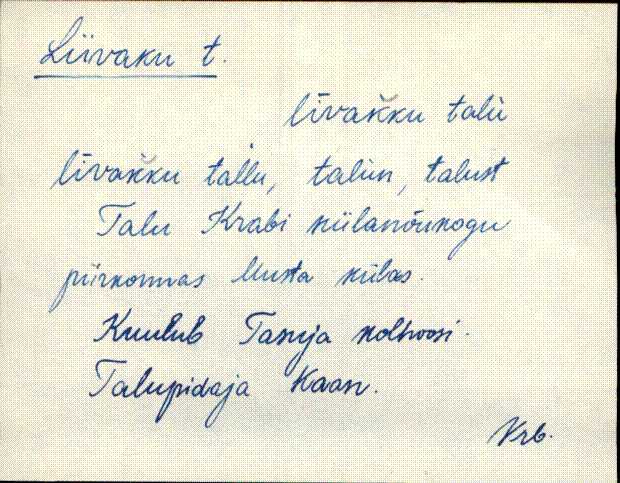 Liivaku t.
līvakku talù
līvakku tàllu, talùn, talust
Talu Krabi külanõukogu
piirkonnas Musta külas.
Kuulub Tasuja kolhoosi.
Talupidaja Kaan.
Vrb.